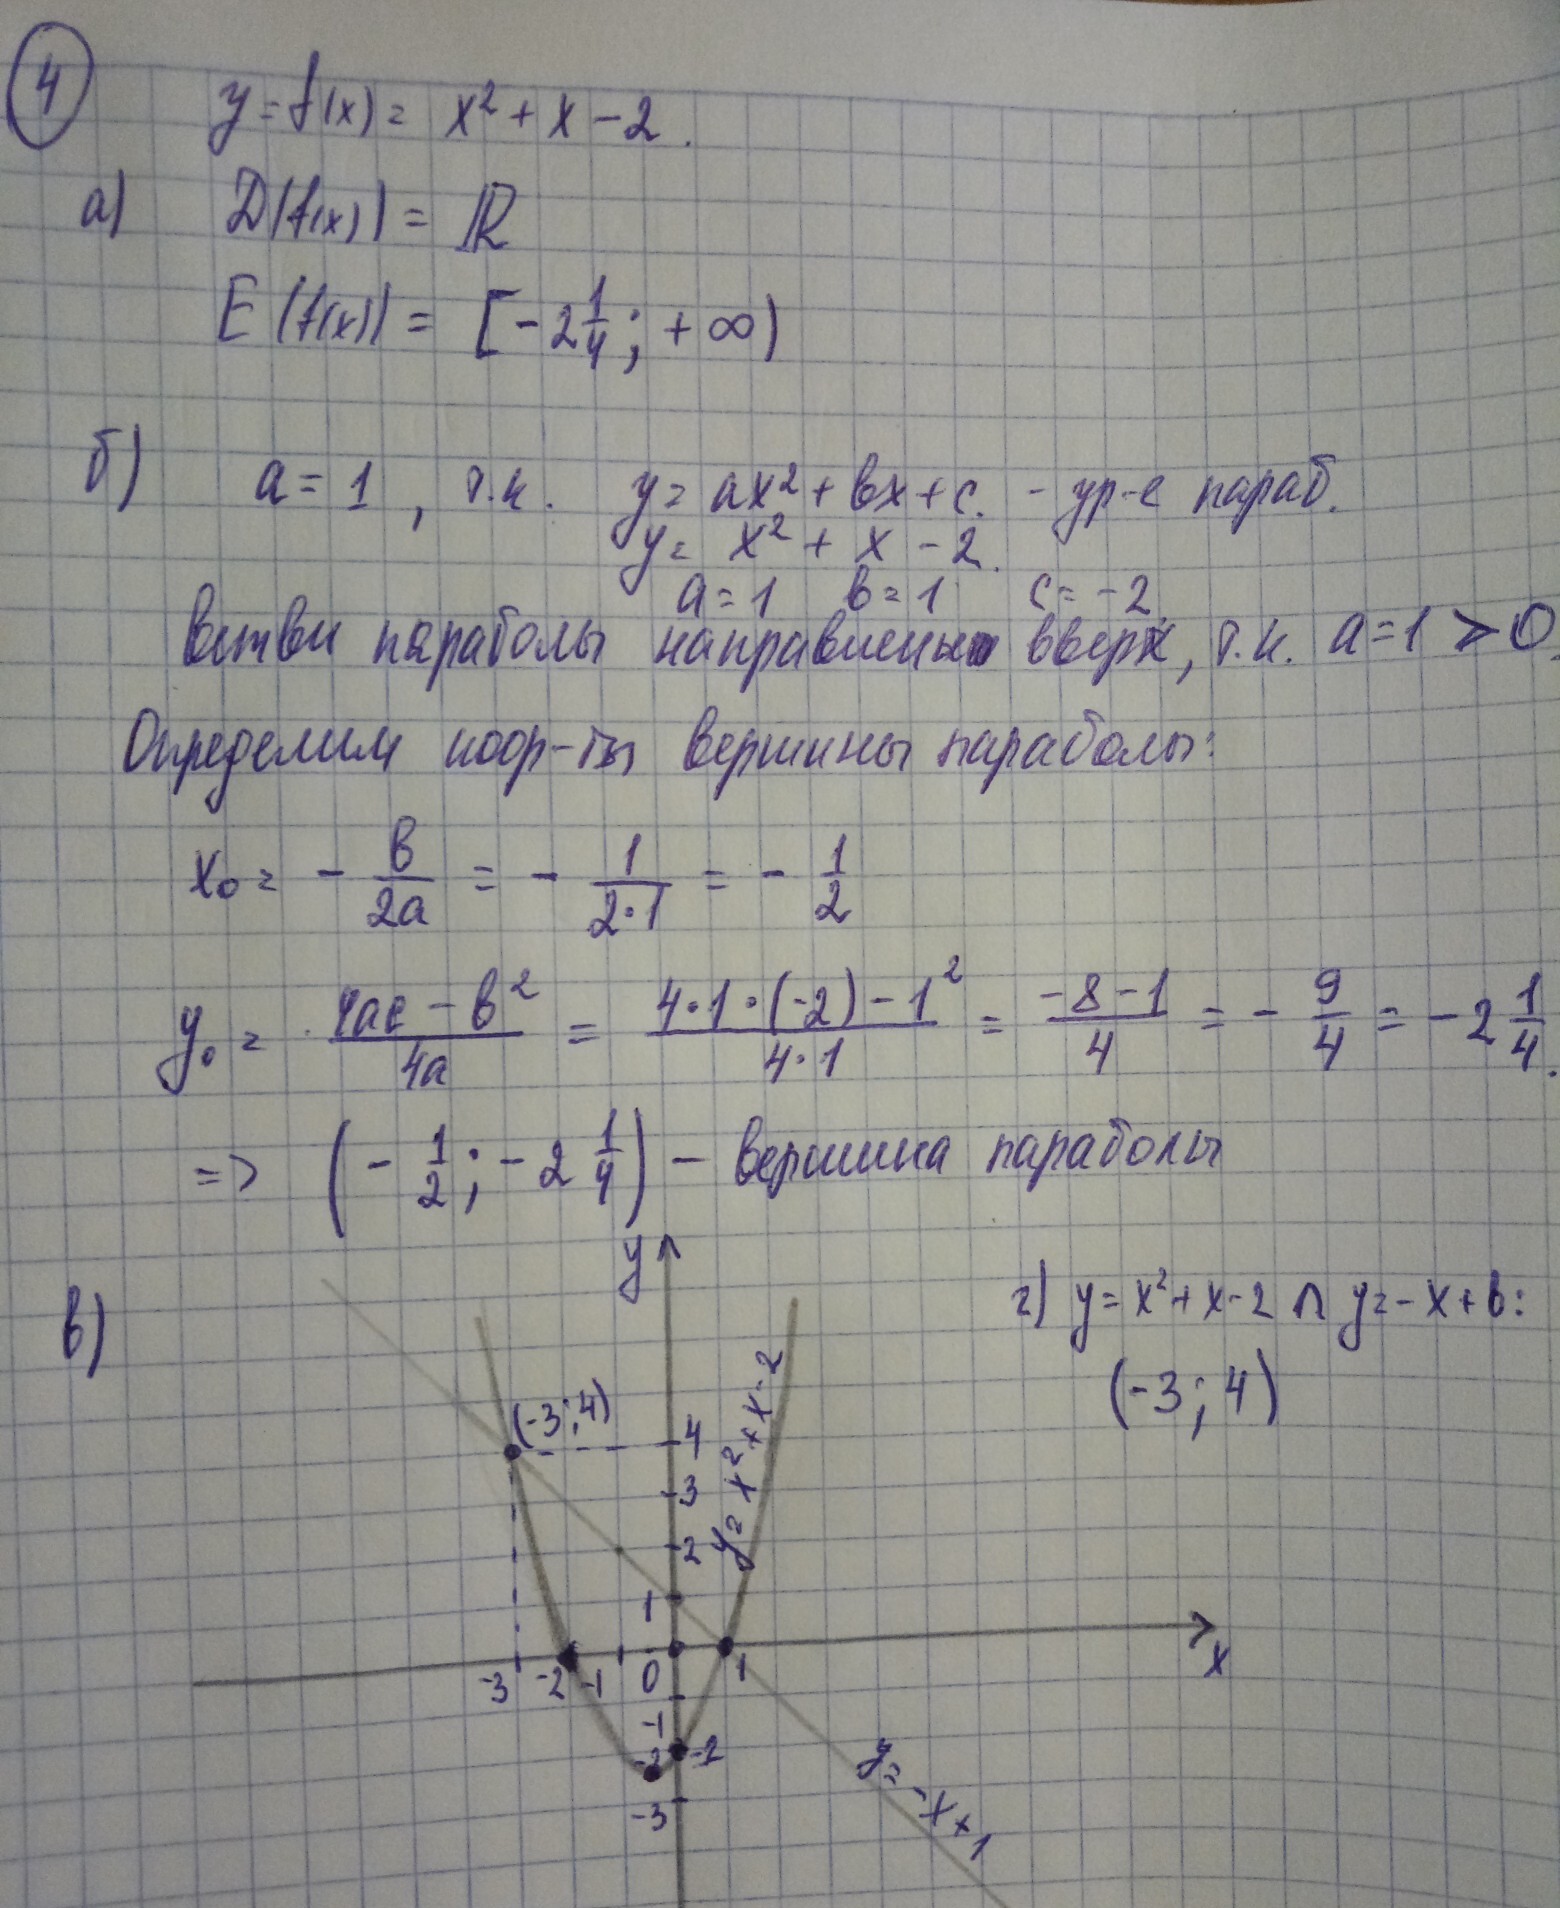 4
y = f(x) = x² + x - 2.
а) D(f(x)) = ℝ
E(f(x)) = [-2 1/4; +∞)
б) a = 1, т.к. y = ax² + bx + c. - ур-е параб.
y = x² + x - 2.
a = 1 b = 1 c = -2
Ветви параболы направлены вверх, т.к. a = 1 > 0.
Определим коор-ты вершины параболы:
x₀ = - b/2a = - 1/(2·1) = - 1/2
y₀ = (4ac - b²)/4a = (4·1·(-2) - 1²)/(4·1) = (-8-1)/4 = - 9/4 = -2 1/4.
=> (- 1/2; -2 1/4) - вершина параболы
в)
y
г) y = x² + x - 2 ∩ y = -x + b:
(-3; 4)
(-3; 4)
4
3
2
1
y = x² + x - 2
-3 -2 -1 0 1 x
-1
-2 -2
-3
y = -x + 1